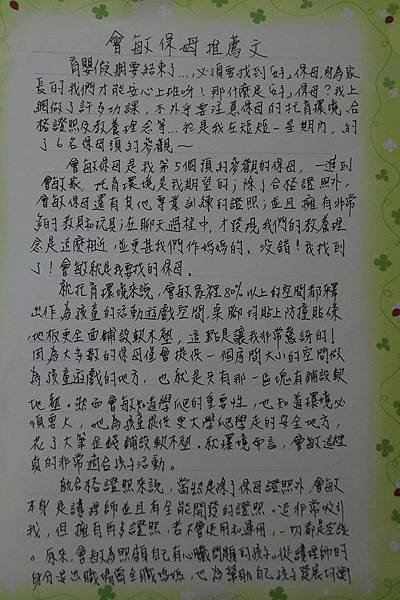 會敏保母推薦文
育嬰假期要結束了…,必須要找到「好」保母,身為家
長的我們才能安心上班呀!那什麼是「好」保母?我上
網做了許多功課,不外乎要注意保母的托育環境、合
格證照及教養理念等…於是我在短短一星期內,約
了6名保母預約參觀~
會敏保母是我第5個預約參觀的保母,一進到
會敏家,托育環境是我期望的;除了合格證照外,
會敏保母還有其他專業訓練的證照;並且擁有非常
多的教具和玩具;在聊天過程中,才發現我們的教養理
念是這麼相近,並更甚我們作媽媽的、沒錯!我找到
了!會敏就是我要找的保母。
就托育環境來說,會敏家裡80%以上的空間都釋
出作為孩童的活動遊戲空間,桌腳、牆貼上防撞貼條
地板更全面鋪設軟木墊,這點是讓我非常驚訝的!
因為大多數的保母僅會提供一個房間大小的空間做
為孩童遊戲的地方,也就是只有那一區塊有鋪設軟
地墊。然而會敏知道學爬的重要性,也知道環境必
須要大,他為孩童提供更大學爬學走的安全地方,
花了大筆金錢鋪設軟木墊。就環境而言,會敏這裡
真的非常適合孩子活動。
就合格證照來說,當然是除了保母證照外,會敏
本身是護理師並且有全能開發的證照。這非常吸引
我,但擁有再多證照,若不會使用和運用,一切都是空談
。原來,會敏為照顧自己有心臟問題的孩子。從護理師的
身分退出職場當全職媽媽,也為幫助自己孩子發展